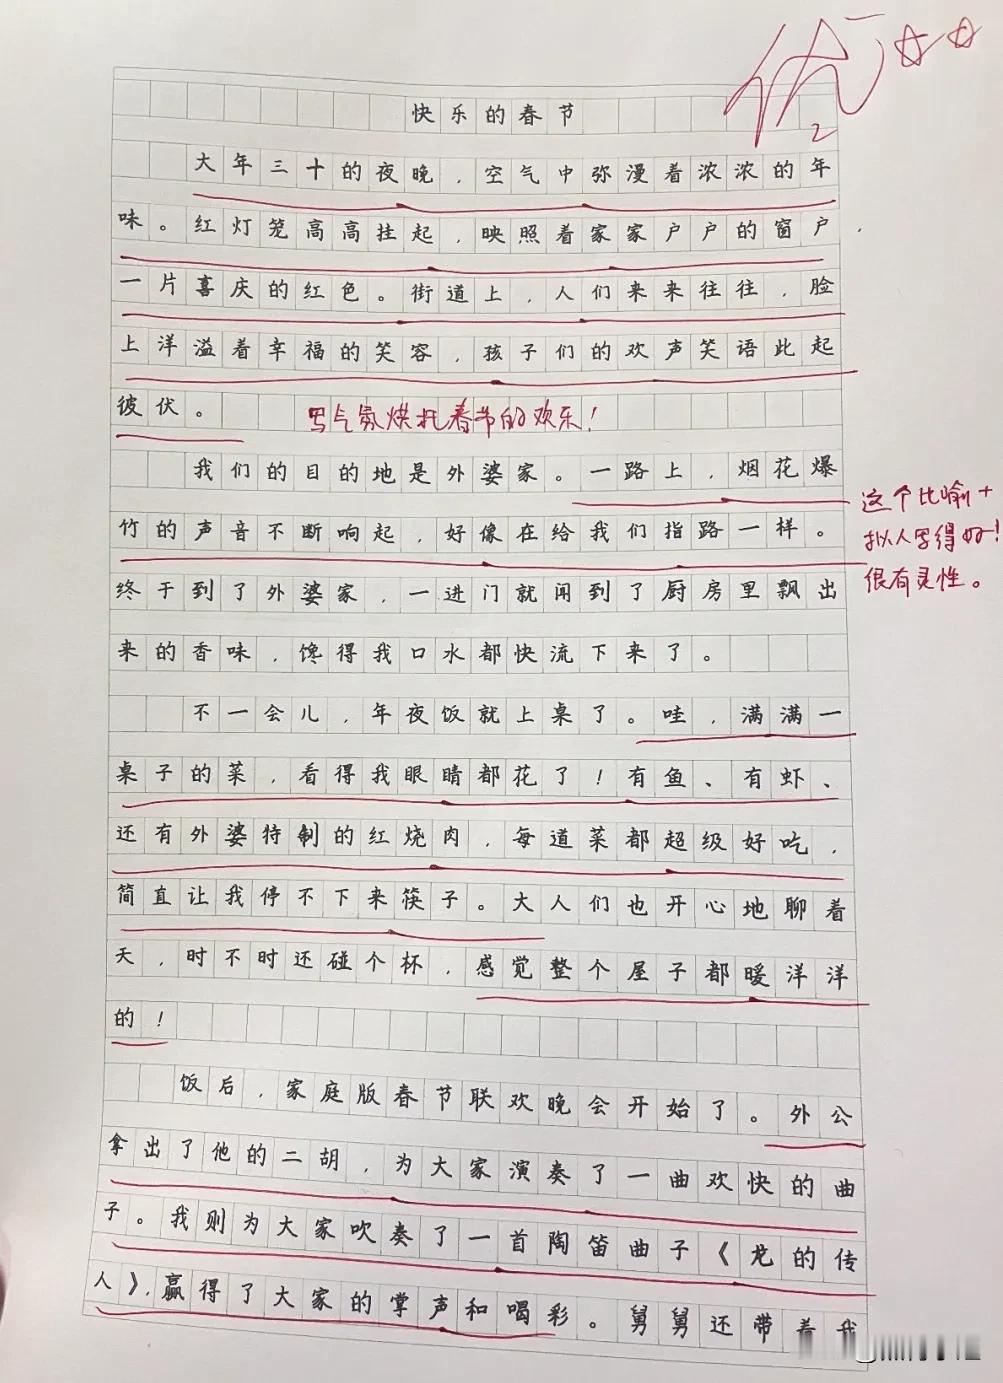 优 2
快乐的春节
大年三十的夜晚，空气中弥漫着浓浓的年
味。红灯笼高高挂起，映照着家家户户的窗户，
一片喜庆的红色。街道上，人们来来往往，脸
上洋溢着幸福的笑容，孩子们的欢声笑语此起
彼伏。
写气氛烘托春节的欢乐！
我们的目的地是外婆家。一路上，烟花爆
竹的声音不断响起，好像在给我们指路一样。
这个比喻+
拟人写得好！
很有灵性。
终于到了外婆家，一进门就闻到了厨房里飘出
来的香味，馋得我口水都快流下来了。
不一会儿，年夜饭就上桌了。哇，满满一
桌子的菜，看得我眼睛都花了！有鱼、有虾、
还有外婆特制的红烧肉，每道菜都超级好吃，
简直让我停不下来筷子。大人们也开心地聊着
天，时不时还碰个杯，感觉整个屋子都暖洋洋
的！
饭后，家庭版春节联欢晚会开始了。外公
拿出了他的二胡，为大家演奏了一曲欢快的曲
子。我则为大家吹奏了一首陶笛曲子《龙的传
人》，赢得了大家的掌声和喝彩。舅舅还带着我